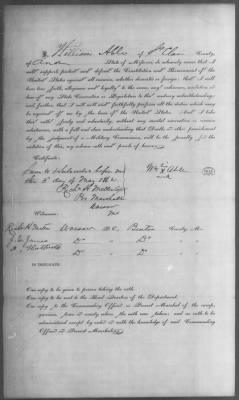 I, William Able of St Clair County
of State of Missouri, do solemnly swear that I
will support, protect and defend the Constitution and Government of the
United States against all enemies, whether domestic or foreign; that I will
bear true faith, allegiance and loyalty to the same, any ordinance, resolution or
law of any State Convention or Legislature to the contrary notwithstanding;
and further, that I will well and faithfully perform all the duties which may
be required of me by the laws of the United States. And I take
this oath freely and voluntarily, without any mental reservation or evasion
whatsoever, with a full and clear understanding that Death, or other punishment
by the judgment of a Military Commission, will be the penalty for the
violation of this, my solemn oath and parole of honor.
Certificate:
Sworn to & Subscribed before me
this 3d day of May 1862
Pro Marshal
Warsaw
Mo
Wm X Able
mark
Witnesses:
Warsaw Benton County Mo
James Do Do
Do Do
IN TRIPLICATE.
One copy to be given to person taking the oath.
One copy to be sent to the Head Quarters of the Department.
One copy to the Commanding Officer or Provost Marshal of the
nearest to county where the oath was taken; and no oath to be
administered except by and with the knowledge of said Commanding
Officer or Provost Marshal.